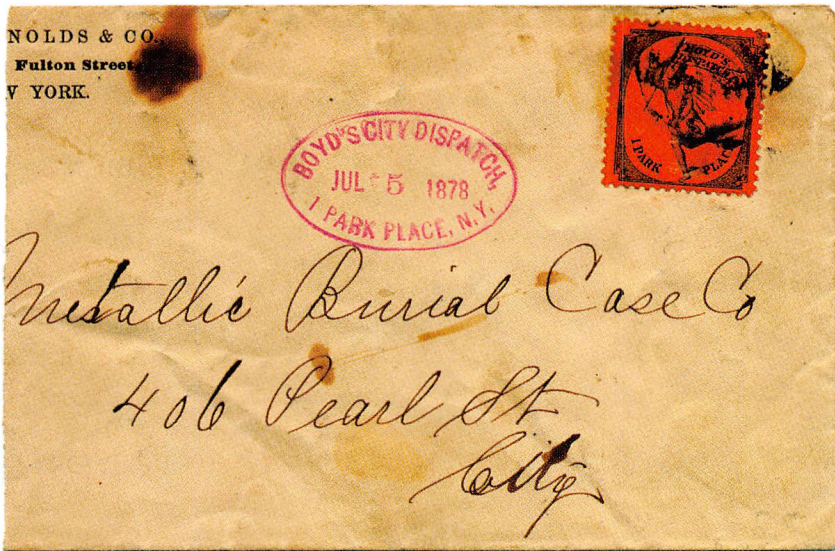 NOLDS & CO.
Fulton Street
W YORK.
BOYD'S CITY DISPATCH,
JUL 5 1878
1 PARK PLACE, N.Y.
BOYD'S
DISPATCH
1 PARK PLACE
Metallic Burial Case Co
406 Pearl St
City